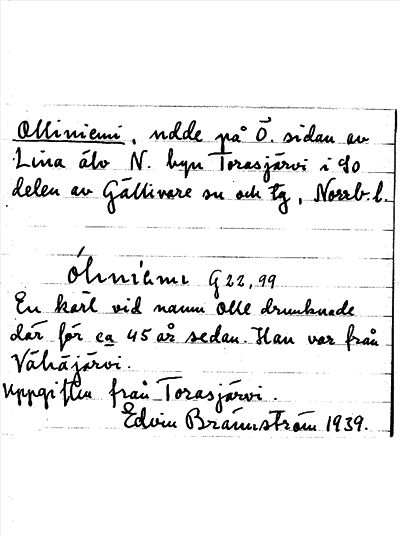 Olliniemi, udde på Ö. sidan av
Lina älv N. byn Torasjärvi i SO
delen av Gällivare sn och tg, Norrb. l.
Óliniemi G22,99
En karl vid namn Olle drunknade
där för ca 45 år sedan. Han var från
Vähäjärvi.
Uppgiften från Torasjärvi.
Edvin Brännström 1939.